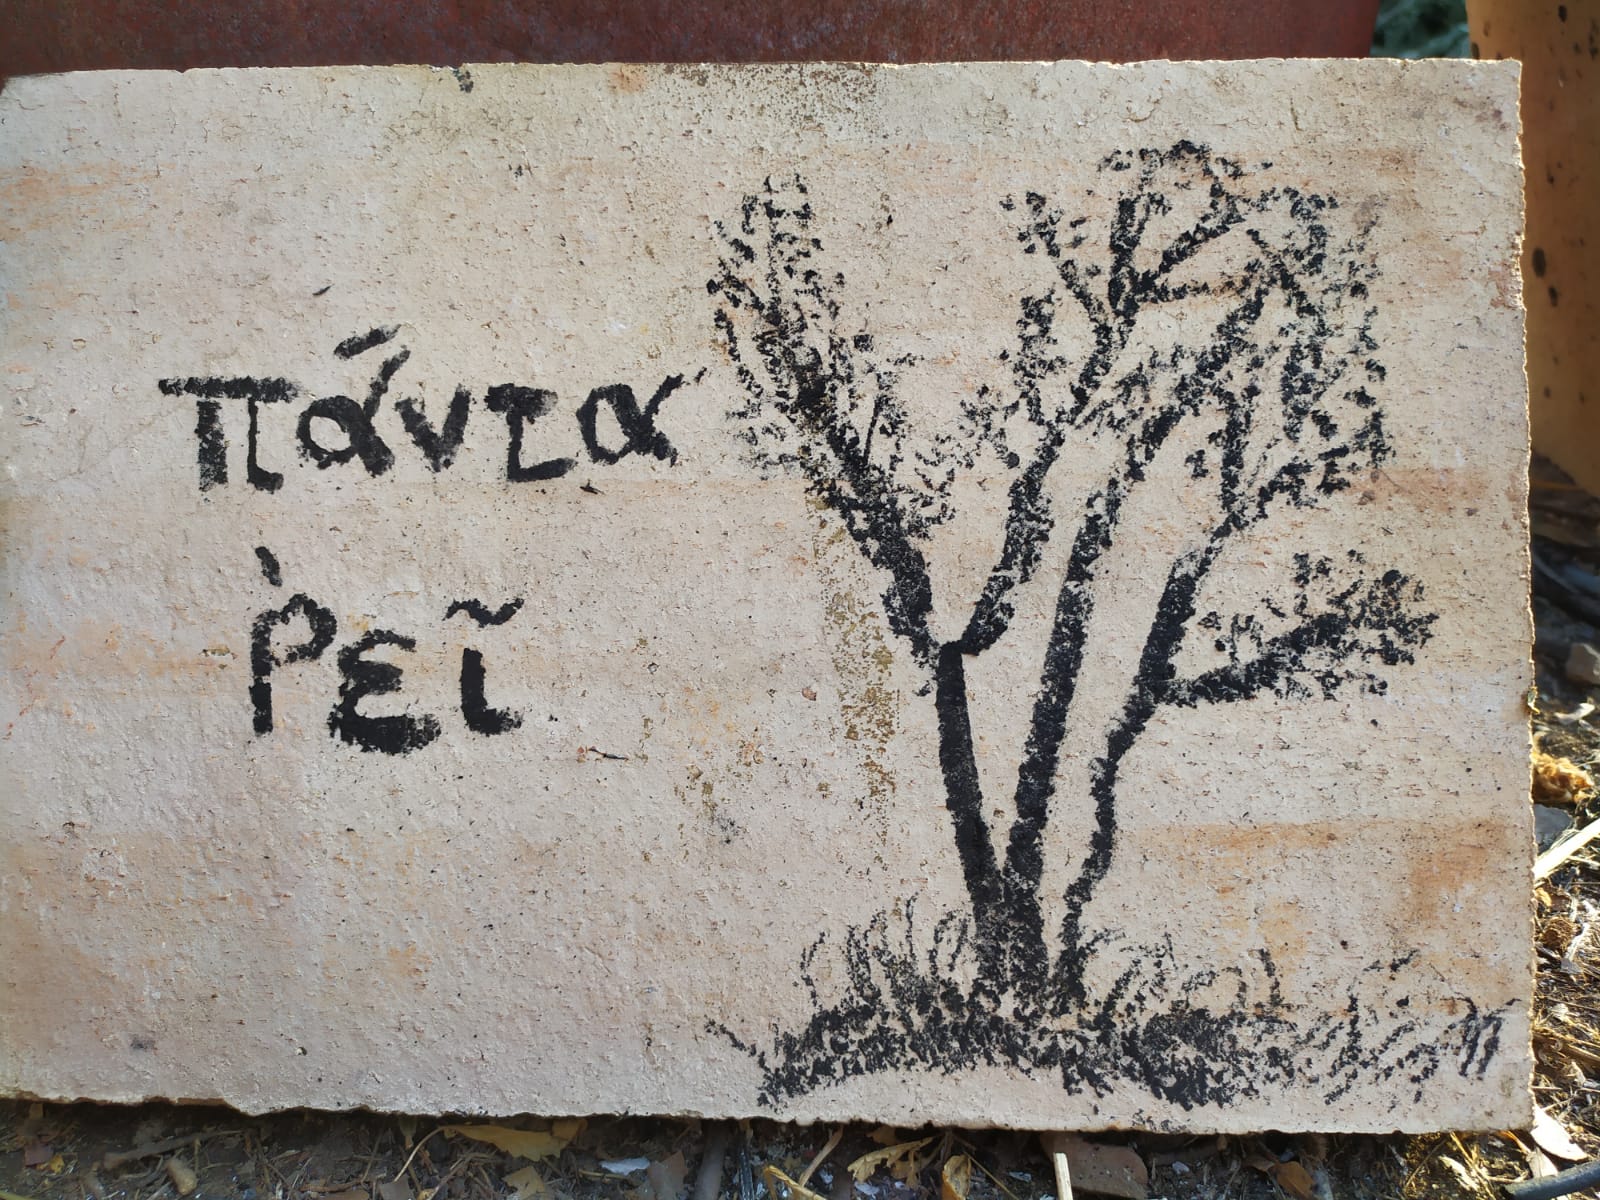 πάντα
ῥεῖ